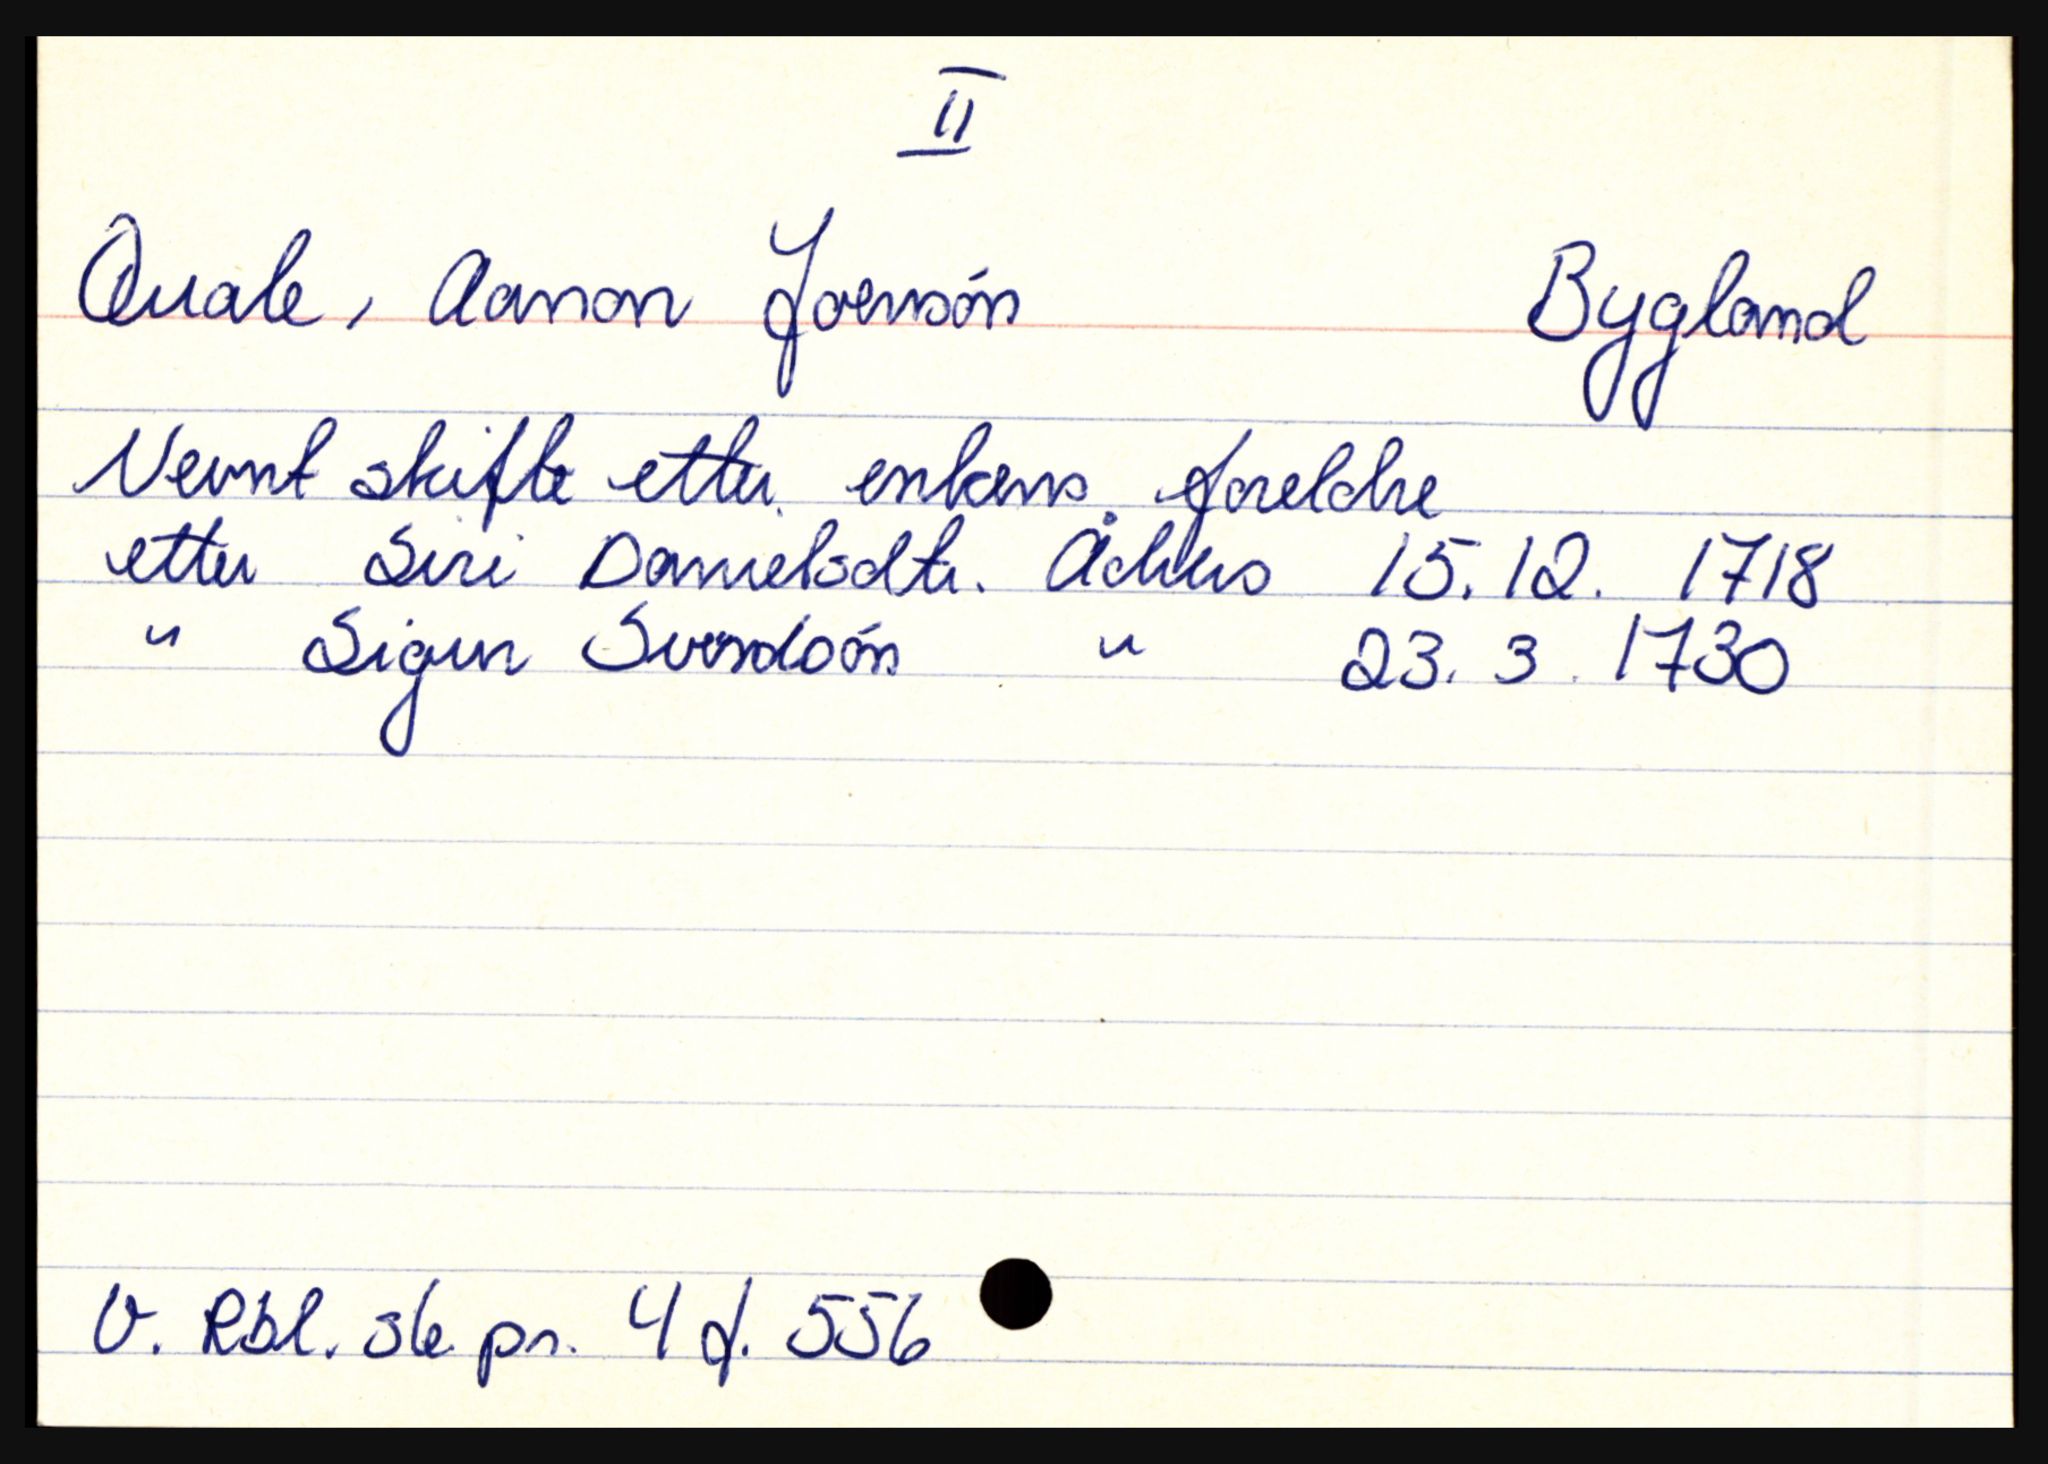 II
Quale, Aanon Joensøn Bygland
Nevnt skifte etter enkens foreldre
etter Siri Danielsdtr. 15.12. 1718
" Sigur Svendsøn " 23. 3. 1730
V. Rbl. sk. pr. 4 f. 556